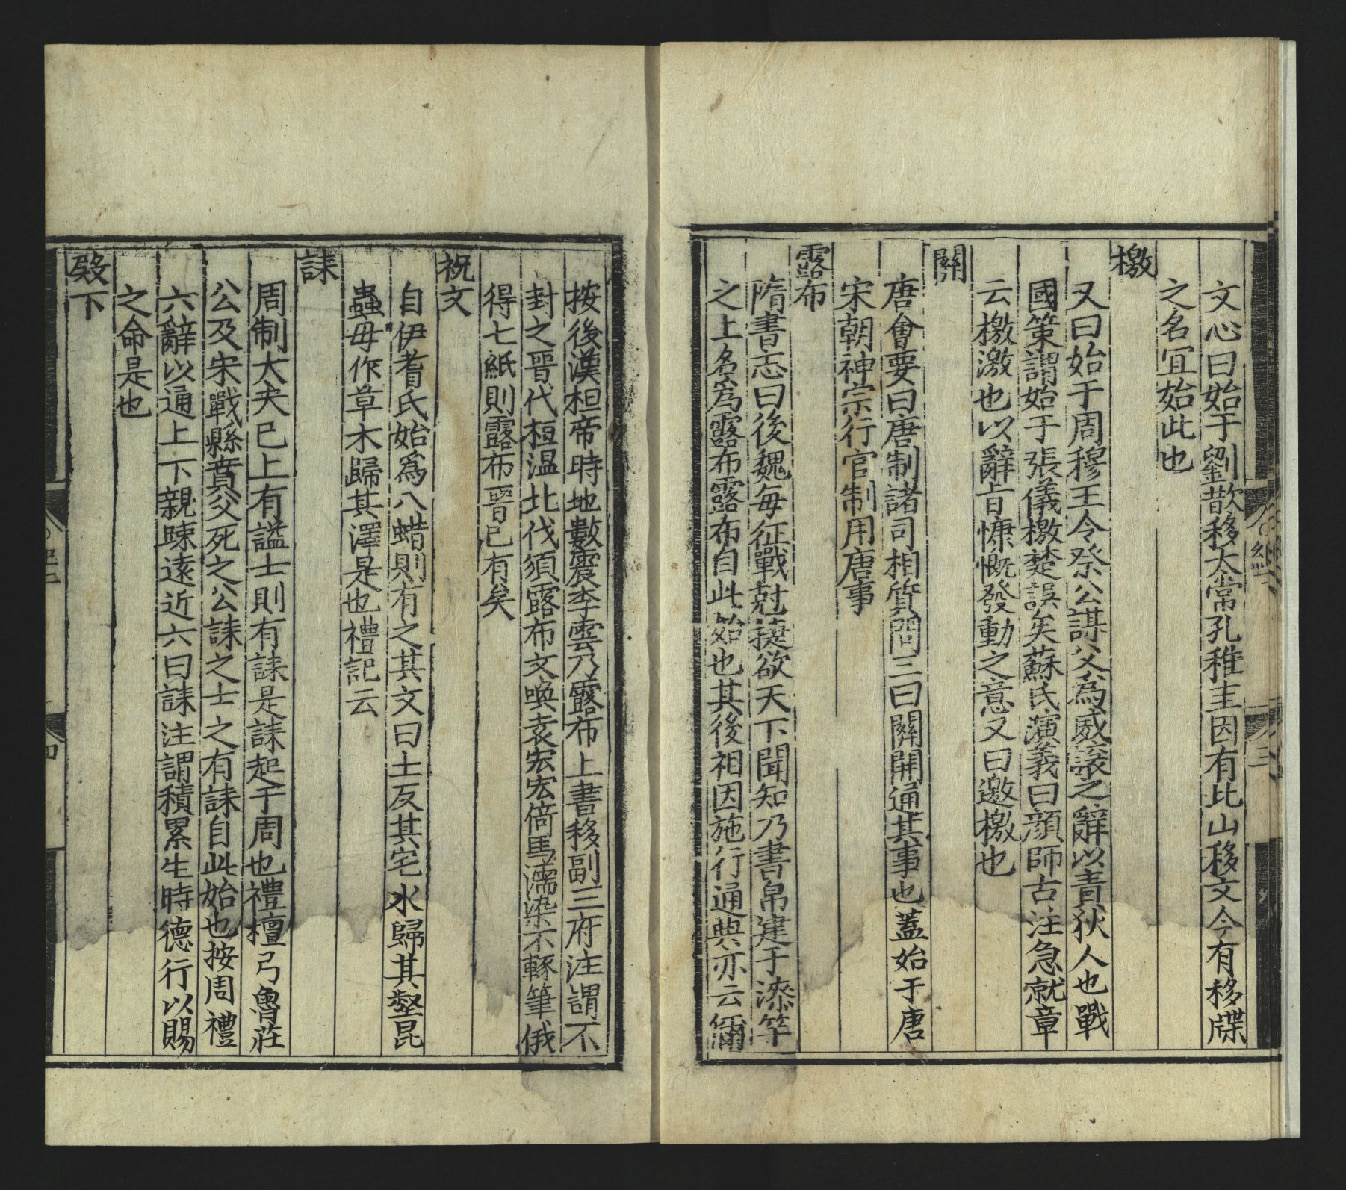 文心曰始于劉歆移太常孔稚圭因有北山移文今有移牒
之名宜始此也
檄
又曰始于周穆王令祭公謀父為威讓之辭以責狄人也戰
國策謂始于張儀檄楚誤矣蘇氏演義曰顔師古注急就章
云檄激也以辭旨慷慨發動之意又曰邀檄也
關
唐會要曰唐制諸司相質問三曰關開通其事也蓋始于唐
宋朝神宗行官制用唐事
露布
隋書志曰後魏每征戰尅捷欲天下聞知乃書帛建于漆竿
之上名爲露布露布自此始也其後相因施行通典亦云爾
按後漢桓帝時地數震李雲乃露布上書移副三府注謂不
封之晉代桓温北伐須露布文喚袁宏宏倚馬濡染不輟筆俄
得七紙則露布晉已有矣
祝文
自伊耆氏始爲八蜡則有之其文曰土反其宅水歸其壑昆
蟲毋作草木歸其澤是也禮記云
誄
周制大夫已上有謚士則有誄是誄起于周也禮檀弓魯莊
公及宋戰縣賁父死之公誄之士之有誄自此始也按周禮
六辭以通上下親踈遠近六曰誄注謂積累生時德行以賜
之命是也
殿下